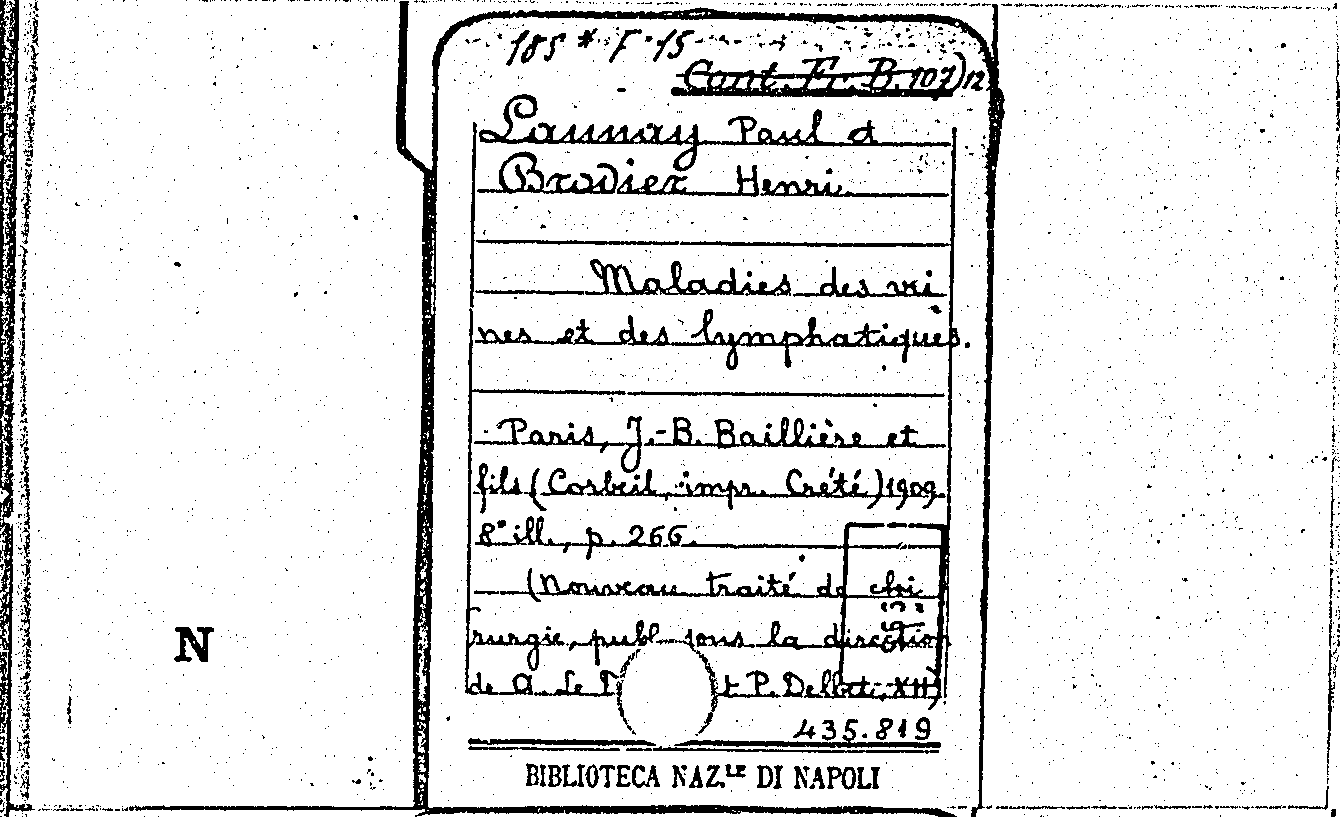 185 * F 15
Cont. Fr. B. 107) 12
Launay Paul et
Brodier Henri.
Maladies des vei
nes et des lymphatiques.
Paris, J.-B. Baillière et
fils (Corbeil, impr. Crété) 1909.
8° ill., p. 266.
(Nouveau traité de chi
rurgie, publ. sous la direction
de A. Le D t P. Delbet, XII)
435.819
N
BIBLIOTECA NAZ.LE DI NAPOLI